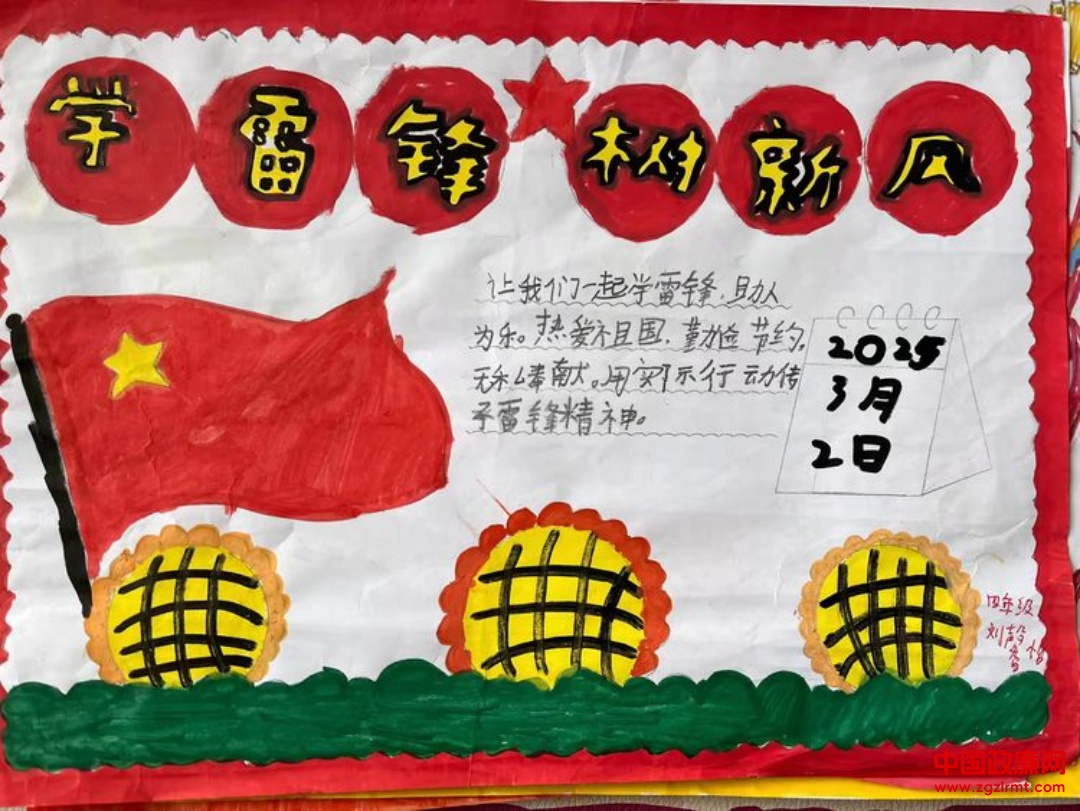 学雷锋树新风
让我们一起学雷锋,助人
为乐。热爱祖国,勤俭节约,
无私奉献。用实际行动传
承雷锋精神。
2025
3月
2日
四年级
刘馨
中国政廉网
www.zgzlrmt.com